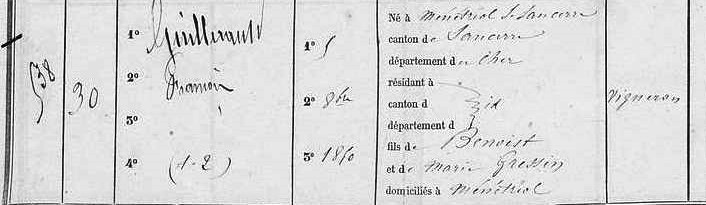 538
30
1° Guillerault
2° François
3°
4° (1-2)
1° 5
2° 8bre
3° 1850
Né à Ménétréol S. Sancerre
canton de Sancerre
département du Cher
résidant à
canton d id
département d
fils de Benoist
et de Marie Gressin
domiciliés à Ménétréol
Vigneron